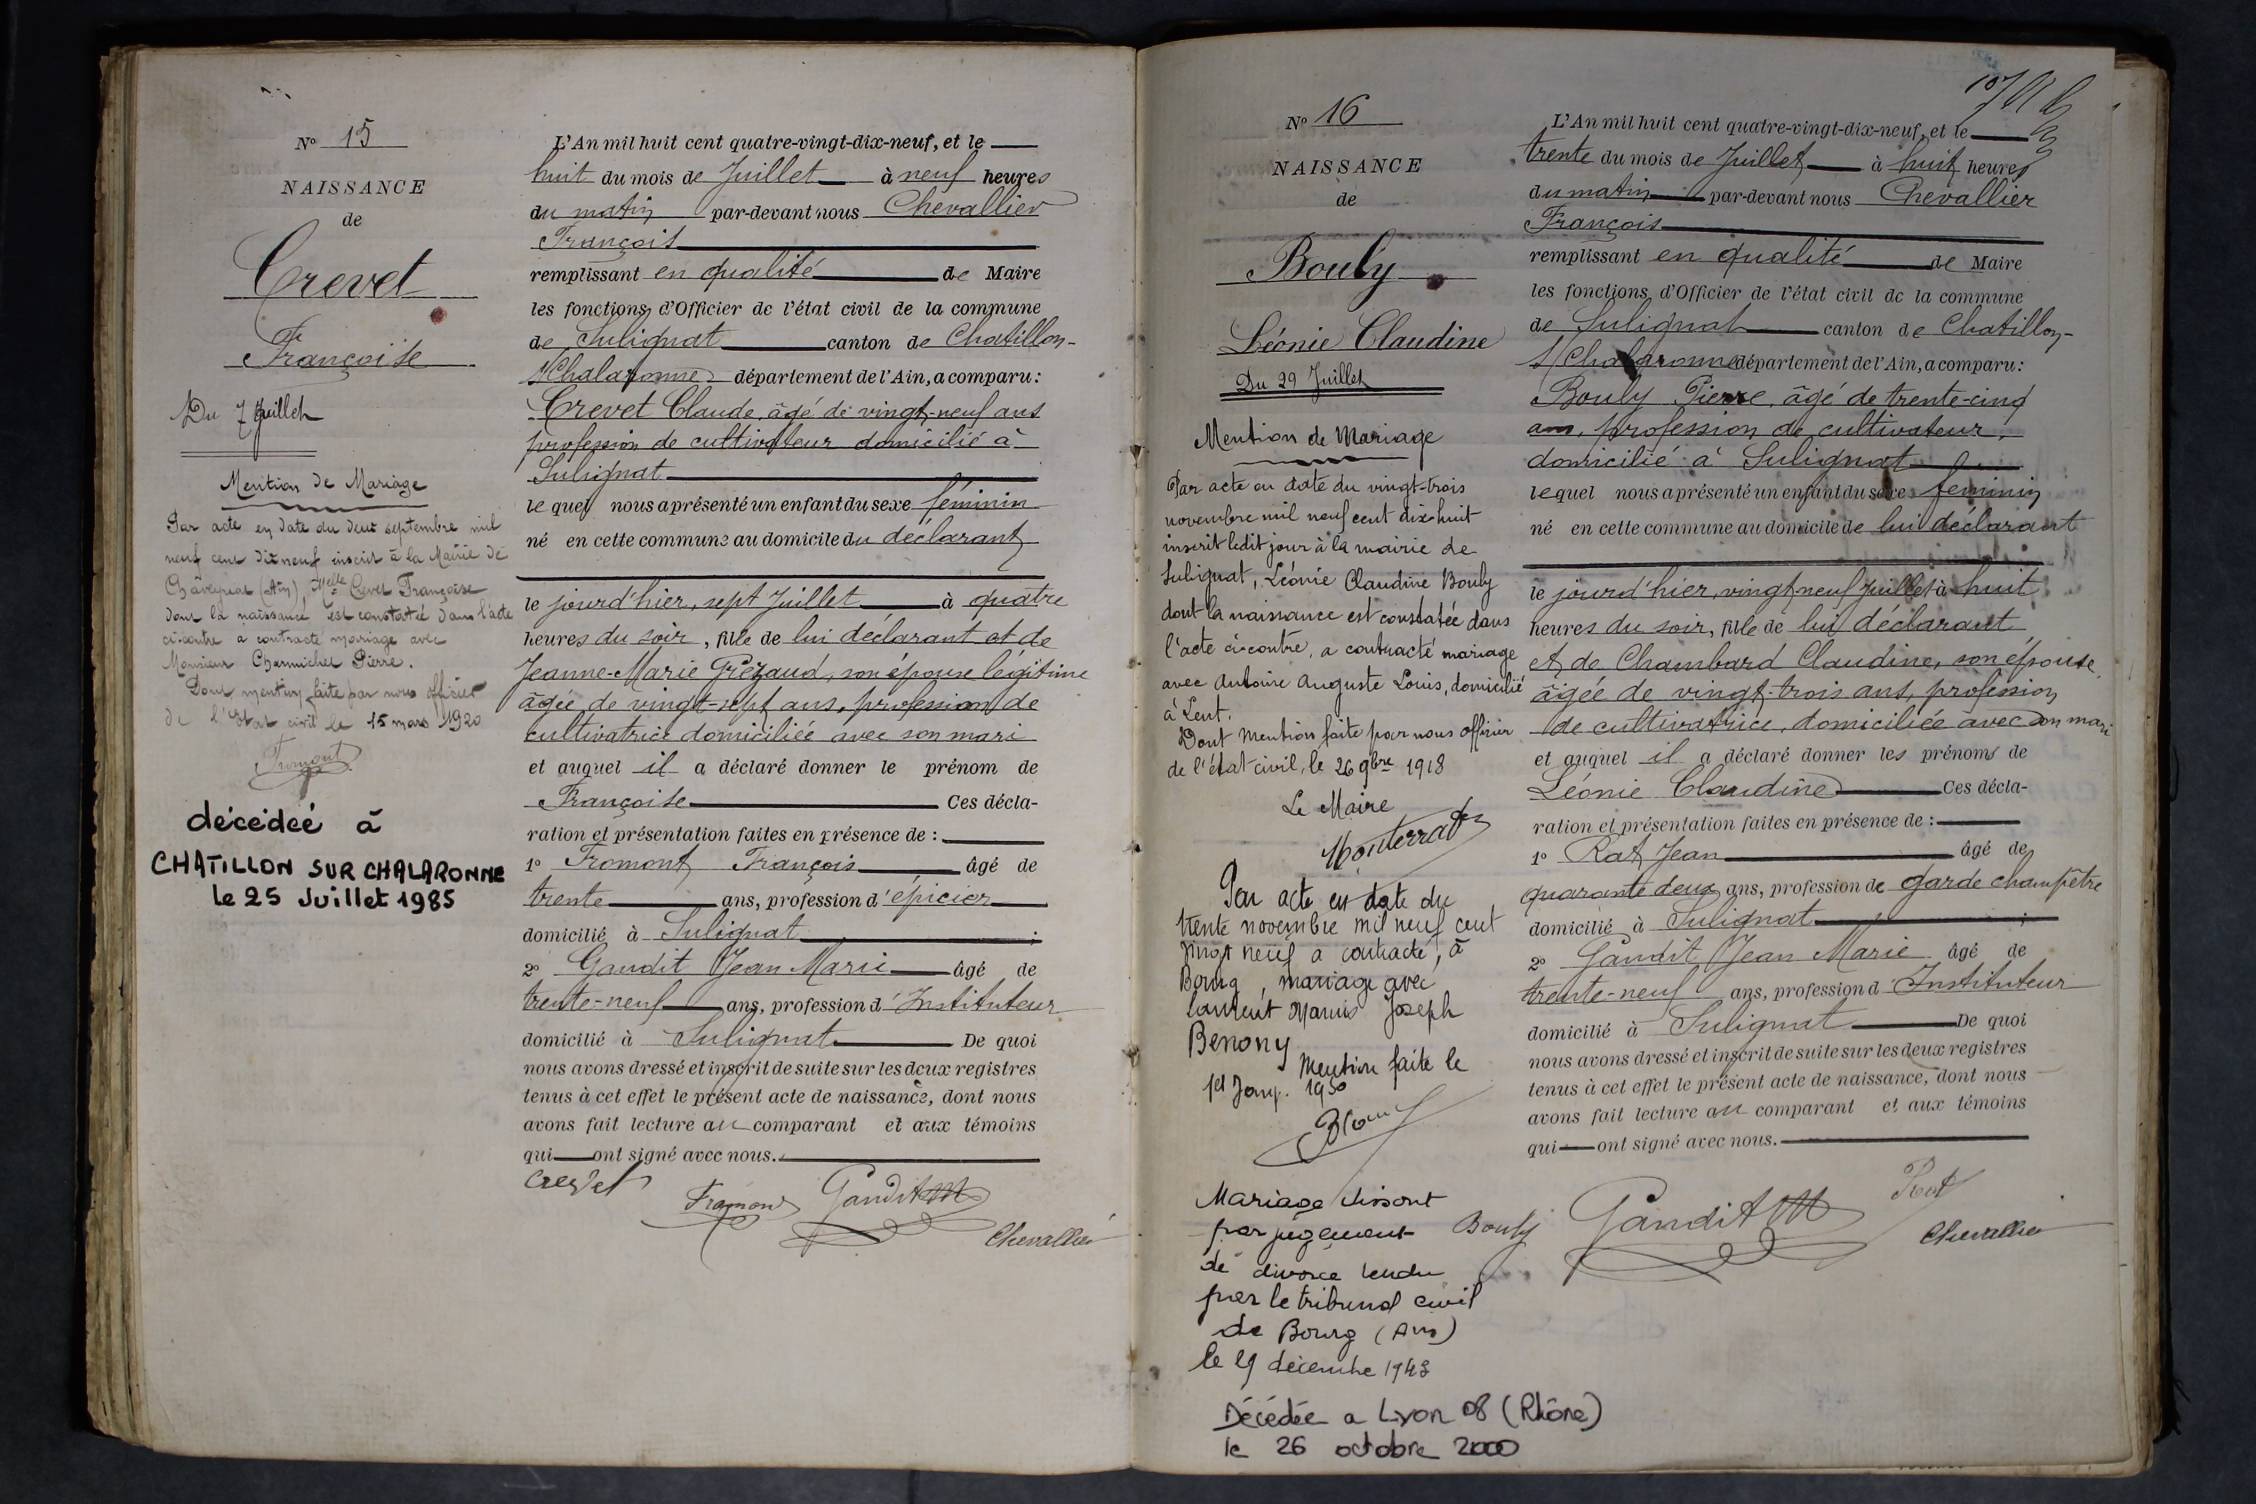 Nº 15
NAISSANCE
de
Crevet
Françoise
Du 7 Juillet
Mention de Mariage
Par acte en date du deux septembre mil
neuf cent dix neuf inscrit à la Mairie de
Chaveyriat (Ain), Melle Crevet Françoise
dont la naissance est constatée dans l'acte
ci-contre a contracté mariage avec
Monsieur Charmichel Pierre.
Dont mention faite par nous officier
de l'Etat civil le 15 mars 1920
Fromont
décédée à
CHATILLON SUR CHALARONNE
le 25 Juillet 1985
L'An mil huit cent quatre-vingt-dix-neuf, et le
huit du mois de Juillet à neuf heures
du matin par-devant nous Chevallier
François
remplissant en qualité de Maire
les fonctions d'Officier de l'état civil de la commune
de Sulignat canton de Chatillon-
s/Chalaronne département de l'Ain, a comparu :
Crevet Claude, âgé de vingt-neuf ans
profession de cultivateur domicilié à
Sulignat
le quel nous a présenté un enfant du sexe féminin
né en cette commune au domicile du déclarant
le jourd'hier, sept Juillet à quatre
heures du soir, fille de lui déclarant et de
Jeanne-Marie Prézaud, son épouse légitime
âgée de vingt-sept ans, profession de
cultivatrice domiciliée avec son mari
et auquel il a déclaré donner le prénom de
Françoise Ces décla-
ration et présentation faites en présence de :
1º Fromont François âgé de
trente ans, profession d'épicier
domicilié à Sulignat ;
2º Gandit Jean Marie âgé de
trente-neuf ans, profession d'Instituteur
domicilié à Sulignat De quoi
nous avons dressé et inscrit de suite sur les deux registres
tenus à cet effet le présent acte de naissance, dont nous
avons fait lecture au comparant et aux témoins
qui ont signé avec nous.
Crevet
Fromont
Gandit JM
Chevallier
Nº 16
NAISSANCE
de
Bouly
Léonie Claudine
Du 29 Juillet
Mention de Mariage
Par acte en date du vingt-trois
novembre mil neuf cent dix huit
inscrit ledit jour à la mairie de
Sulignat, Léonie Claudine Bouly
dont la naissance est constatée dans
l'acte ci-contre, a contracté mariage
avec Antoine Auguste Louis, domicilié
à Lent.
Dont mention faite par nous officier
de l'état civil, le 26 9bre 1918
Le Maire
Monterrat
Par acte en date du
trente novembre mil neuf cent
vingt neuf a contracté, à
Bourg, mariage avec
Laurent Marius Joseph
Benony
Mention faite le
1er Janv. 1930
Mariage dissout
par jugement
de divorce rendu
par le tribunal civil
de Bourg (Ain)
le 29 décembre 1943
Décédée a Lyon 08 (Rhône)
le 26 octobre 2000
L'An mil huit cent quatre-vingt-dix-neuf, et le
trente du mois de Juillet à huit heures
du matin par-devant nous Chevallier
François
remplissant en qualité de Maire
les fonctions d'Officier de l'état civil de la commune
de Sulignat canton de Chatillon-
s/Chalaronne département de l'Ain, a comparu :
Bouly Pierre, âgé de trente-cinq
ans, profession de cultivateur,
domicilié à Sulignat
le quel nous a présenté un enfant du sexe féminin
né en cette commune au domicile de lui déclarant
le jourd'hier, vingt-neuf Juillet à huit
heures du soir, fille de lui déclarant
et de Chambard Claudine, son épouse,
âgée de vingt-trois ans, profession
de cultivatrice, domiciliée avec son mari
et auquel il a déclaré donner les prénoms de
Léonie Claudine Ces décla-
ration et présentation faites en présence de :
1º Rat Jean âgé de
quarante deux ans, profession de garde champêtre
domicilié à Sulignat ;
2º Gandit Jean Marie âgé de
trente-neuf ans, profession d'Instituteur
domicilié à Sulignat De quoi
nous avons dressé et inscrit de suite sur les deux registres
tenus à cet effet le présent acte de naissance, dont nous
avons fait lecture au comparant et aux témoins
qui ont signé avec nous.
Bouly
Gandit JM
Rat
Chevallier